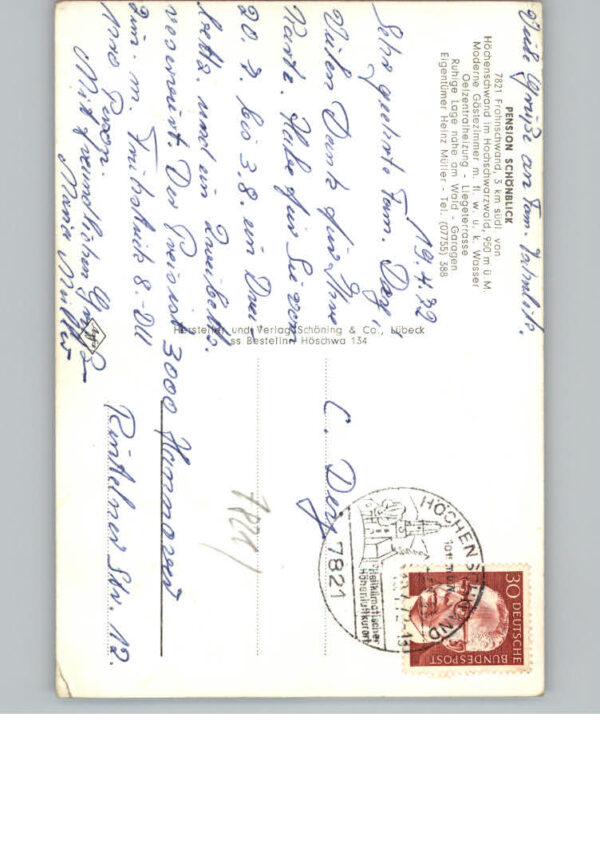 PENSION SCHÖNBLICK
7821 Frohnschwand, 3 km südl. von
Höchenschwand im Hochschwarzwald, 950 m ü. M.
Moderne Gästezimmer m. fl. w. u. k. Wasser
Oelzentralheizung - Liegeterrasse
Ruhige Lage nahe am Wald - Garagen
Eigentümer Heinz Müller - Tel. (07755) 388
Viele Grüße an Fam.
19.4.72
Sehr geehrte Fam.
Vielen Dank für Ihre
Karte. Habe für Sie vom
20.7. bis 3.8. ein Drei
bettz. und ein Zweibettz.
reserviert. Der Preis ist
zum. m. Frühstück 8.-DM
pro Person.
Mit freundlichen Grüßen
Maria Müller
Hersteller und Verlag Schöning & Co., Lübeck
ss Bestellnr. Höschwa 134
C.
3000 Hannover
Rintelner Str. 12.
7821
HÖCHENSCHWAND
Heilklimatischer
Höhenluftkurort
30
DEUTSCHE
BUNDESPOST